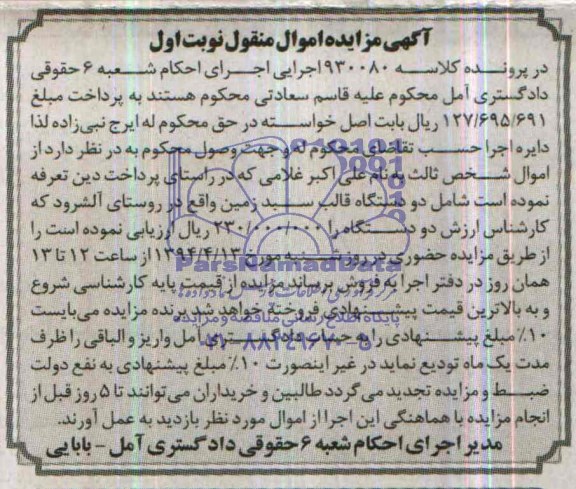 آگهی مزایده اموال منقول نوبت اول
در پرونده کلاسه ۹۳۰۰۸۰ اجرایی اجرای احکام شعبه ۶ حقوقی
دادگستری آمل محکوم علیه قاسم سعادتی محکوم هستند به پرداخت مبلغ
۱۲۷/۶۹۵/۶۹۱ ریال بابت اصل خواسته در حق محکوم له ایرج نبی‌زاده لذا
دایره اجرا حسب تقاضای محکوم له و جهت وصول محکوم به در نظر دارد از
اموال شخص ثالث به نام علی اکبر غلامی که در راستای پرداخت دین تعرفه
نموده است شامل دو دستگاه قالب سبد زمین واقع در روستای آلشرود که
کارشناس ارزش دو دستگاه را ۲۳۰/۰۰۰/۰۰۰ ریال ارزیابی نموده است را
از طریق مزایده حضوری در روز شنبه مورخ ۱۳۹۴/۴/۱۳ از ساعت ۱۲ تا ۱۳
همان روز در دفتر اجرا به فروش برساند مزایده از قیمت پایه کارشناسی شروع
و به بالاترین قیمت پیشنهادی فروخته خواهد شد برنده مزایده می‌بایست
۱۰٪ مبلغ پیشنهادی را به حساب دادگستری آمل واریز و الباقی را ظرف
مدت یک ماه تودیع نماید در غیر اینصورت ۱۰٪ مبلغ پیشنهادی به نفع دولت
ضبط و مزایده تجدید می گردد طالبین و خریداران می‌توانند تا ۵ روز قبل از
انجام مزایده با هماهنگی این اجرا از اموال مورد نظر بازدید به عمل آورند.
مدیر اجرای احکام شعبه ۶ حقوقی دادگستری آمل - بابایی
ParsNamadData
پایگاه اطلاع رسانی مناقصه و مزایده